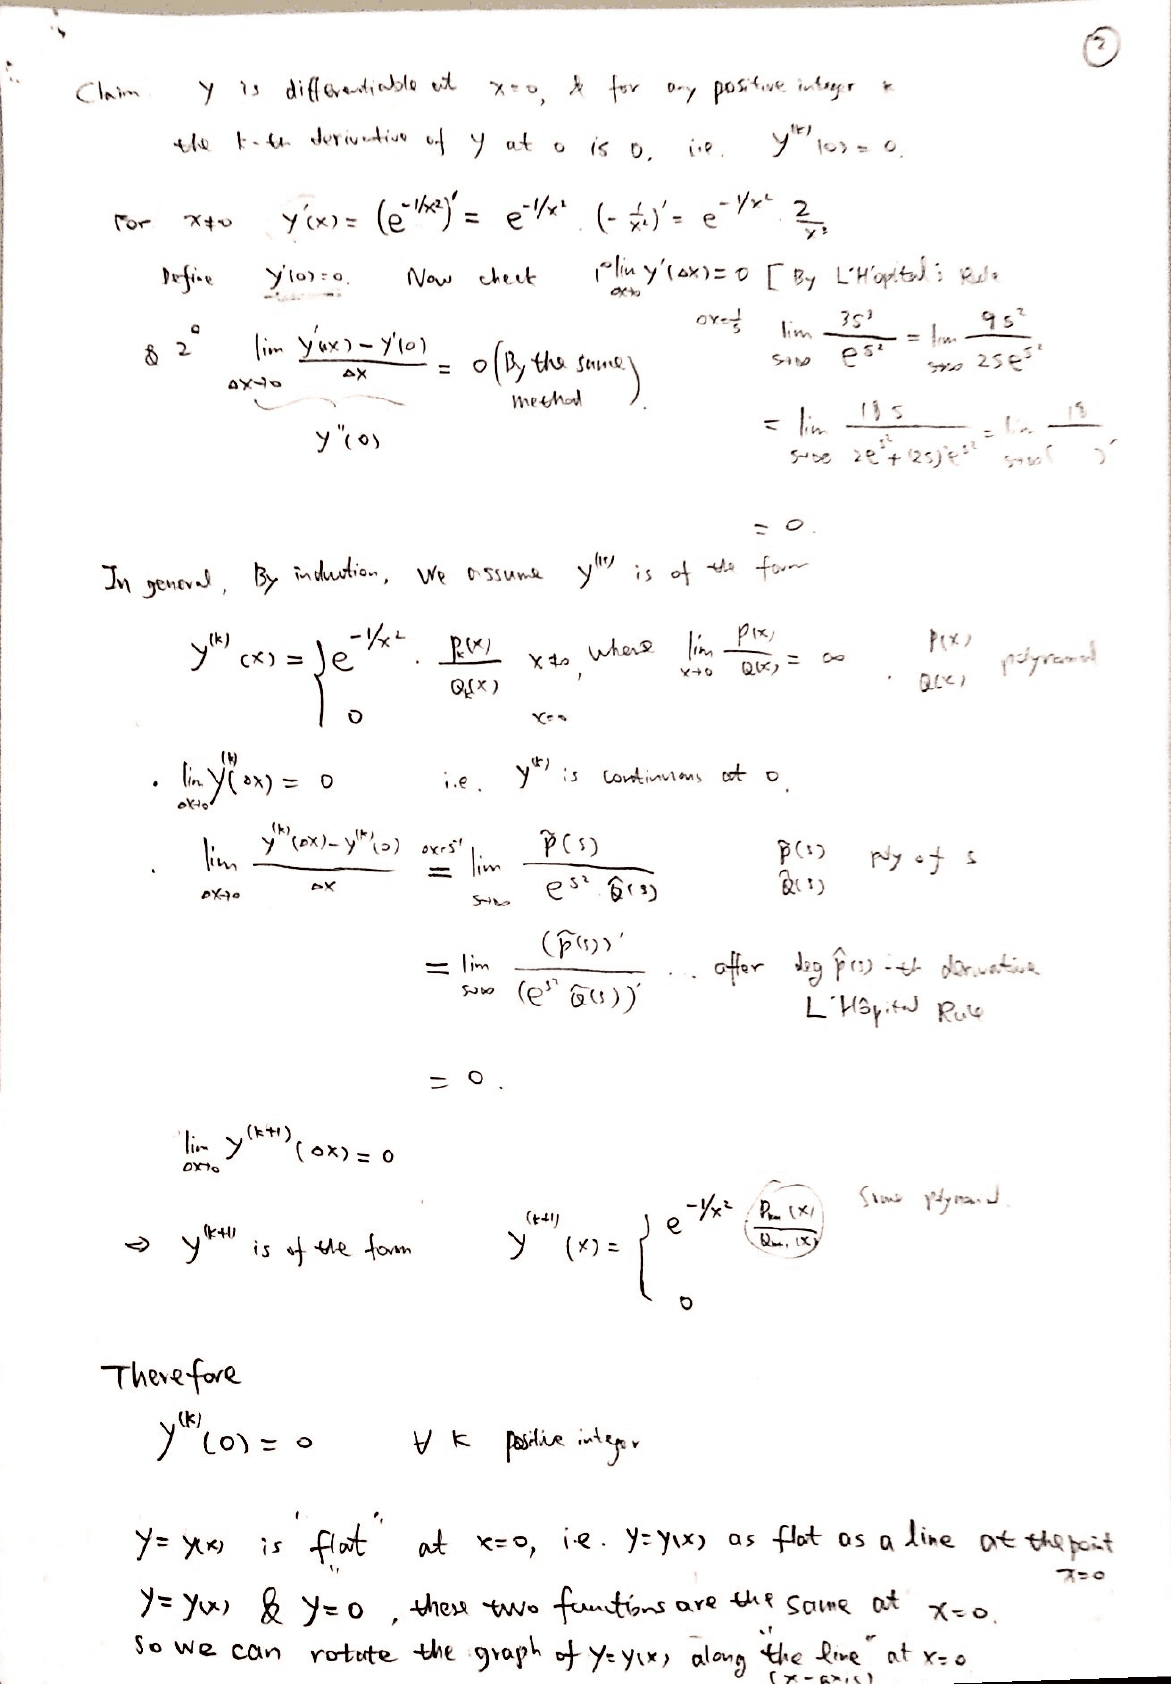 ②
Claim. y is differentiable at x=0, & for any positive integer k
the k-th derivative of y at 0 is 0, i.e. y^(k)(0) = 0.
For x≠0 y'(x) = (e^{-1/x²})' = e^{-1/x²} · (-1/x²)' = e^{-1/x²} · 2/x³
Define y'(0)=0. Now check 1° lim_{Δx→0} y'(Δx) = 0 [ By L'Hôpital's Rule
& 2° lim_{Δx→0} (y'(Δx) - y'(0))/Δx = 0 (By the same method).
y''(0)
Δx=1/s lim_{s→∞} 3s³/e^{s²} = lim_{s→∞} 9s²/2se^{s²}
= lim_{s→∞} 18s/(2e^{s²} + (2s)²e^{s²}) = lim_{s→∞} 18/( )'
= 0.
In general, By induction, we assume y^(k) is of the form
y^(k)(x) = { e^{-1/x²} · P_k(x)/Q_k(x) x≠0, where lim_{x→0} P(x)/Q(x) = ∞. P(x) Q(x) polynomial
0 x=0
· lim_{Δx→0} y^(k)(Δx) = 0 i.e. y^(k) is continuous at 0.
· lim_{Δx→0} (y^(k)(Δx) - y^(k)(0))/Δx Δx=s⁻¹ = lim_{s→∞} P̃(s)/(e^{s²} Q̃(s)) P̃(s) Q̃(s) poly of s
= lim_{s→∞} (P̃(s))'/(e^{s²} Q̃(s))' ... after deg P̃(s)-th derivative
L'Hôpital Rule
= 0.
lim_{Δx→0} y^(k+1)(Δx) = 0
⇒ y^(k+1) is of the form y^(k+1)(x) = { e^{-1/x²} P_{k+1}(x)/Q_{k+1}(x) Some polynomial.
0
Therefore
y^(k)(0) = 0 ∀ k positive integer
y=y(x) is "flat" at x=0, i.e. y=y(x) as flat as a line at the point x=0
y=y(x) & y=0, these two functions are the same at x=0.
So we can rotate the graph of y=y(x) along "the line" at x=0
(x-axis)